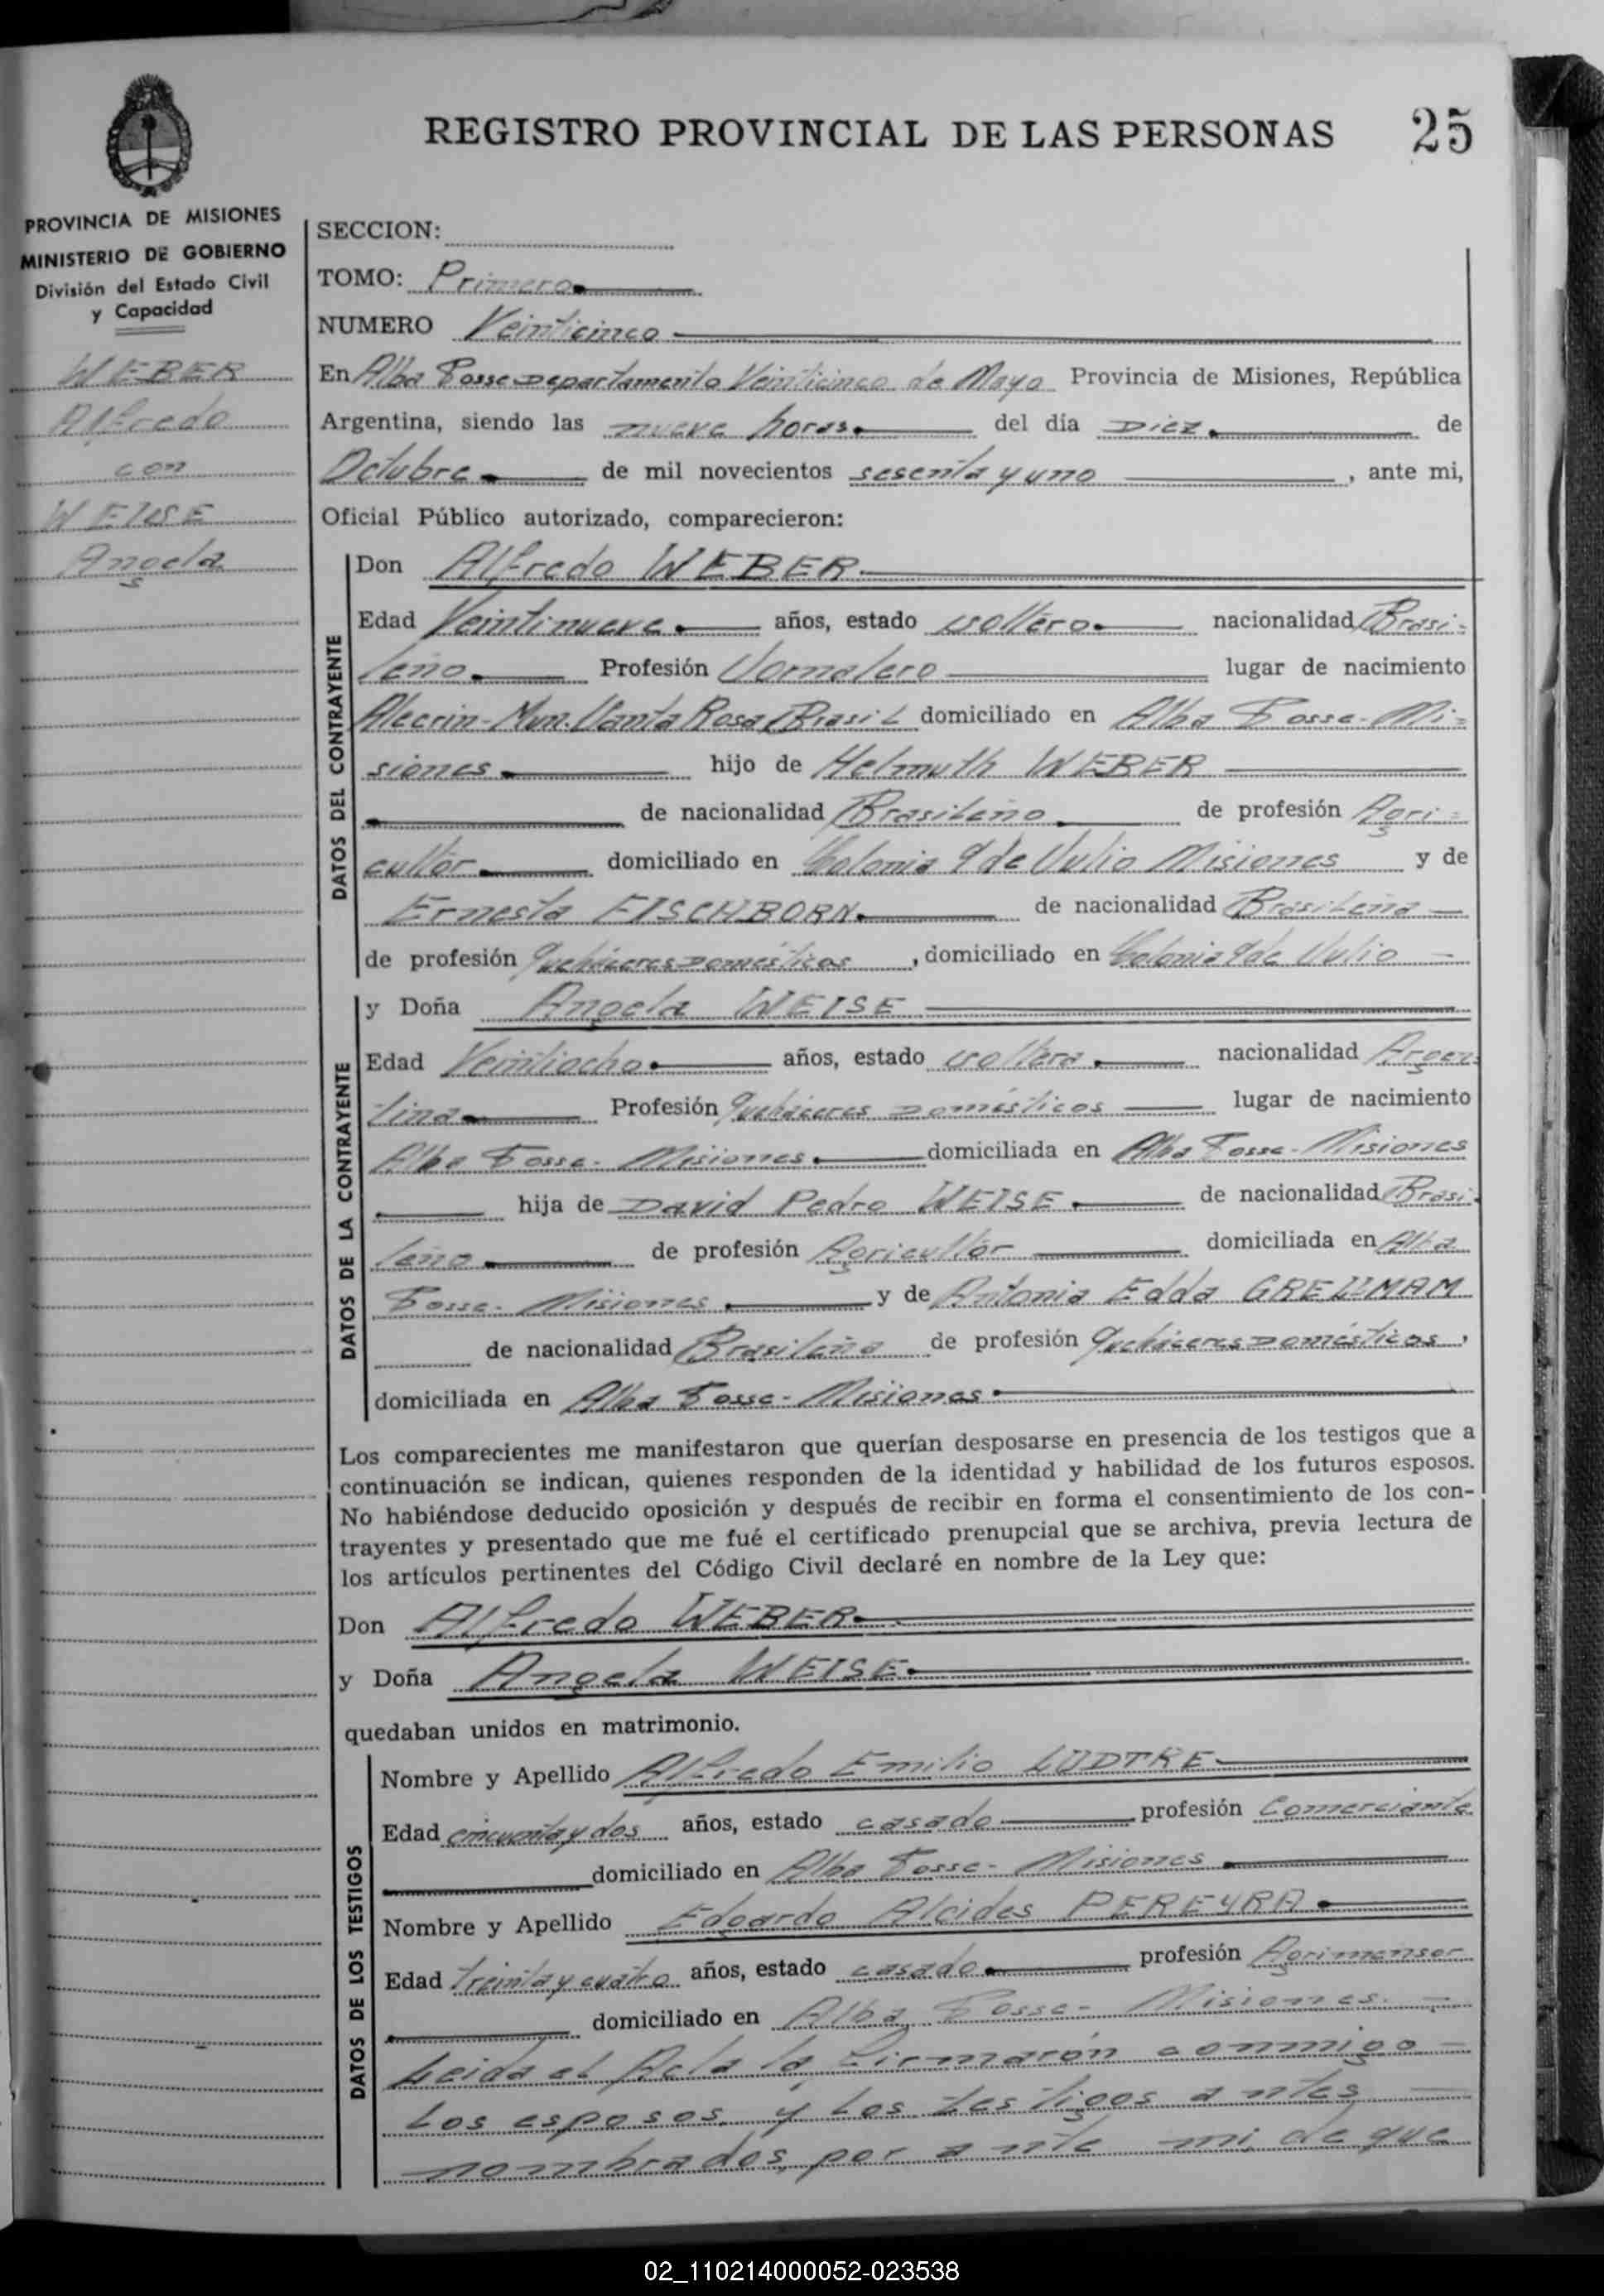 REGISTRO PROVINCIAL DE LAS PERSONAS 25
PROVINCIA DE MISIONES
MINISTERIO DE GOBIERNO
División del Estado Civil
y Capacidad
WEBER
Alfredo
con
WEISE
Angela
SECCION:
TOMO: Primero
NUMERO Veinticinco
En Alba Posse Departamento Veinticinco de Mayo Provincia de Misiones, República
Argentina, siendo las nueve horas del día Diez de
Octubre de mil novecientos sesenta y uno, ante mi,
Oficial Público autorizado, comparecieron:
DATOS DEL CONTRAYENTE
Don Alfredo WEBER
Edad Veintinueve años, estado soltero nacionalidad Brasi-
leño Profesión Jornalero lugar de nacimiento
Alecrin-Mun. Santa Rosa Brasil domiciliado en Alba Posse-Mi=
siones hijo de Helmuth WEBER
de nacionalidad Brasileño de profesión Agri=
cultor domiciliado en Colonia 9 de Julio Misiones y de
Ernesta EISCHBORN de nacionalidad Brasileña
de profesión Quehaceres Domésticos, domiciliado en Colonia 9 de Julio
DATOS DE LA CONTRAYENTE
y Doña Angela WEISE
Edad Veintiocho años, estado soltera nacionalidad Argen
tina Profesión Quehaceres Domésticos lugar de nacimiento
Alba Posse- Misiones domiciliada en Alba Posse-Misiones
hija de David Pedro WEISE de nacionalidad Brasi-
leño de profesión Agricultor domiciliada en Alba
Posse- Misiones y de Antonia Edda GRELLMAM
de nacionalidad Brasileña de profesión Quehaceres Domésticos,
domiciliada en Alba Posse- Misiones
Los comparecientes me manifestaron que querían desposarse en presencia de los testigos que a
continuación se indican, quienes responden de la identidad y habilidad de los futuros esposos.
No habiéndose deducido oposición y después de recibir en forma el consentimiento de los con-
trayentes y presentado que me fué el certificado prenupcial que se archiva, previa lectura de
los artículos pertinentes del Código Civil declaré en nombre de la Ley que:
Don Alfredo WEBER
y Doña Angela WEISE
quedaban unidos en matrimonio.
DATOS DE LOS TESTIGOS
Nombre y Apellido Alfredo Emilio LUDTKE
Edad cincuenta y dos años, estado casado profesión Comerciante
domiciliado en Alba Posse- Misiones
Nombre y Apellido Edgardo Alcides PEREYRA
Edad treinta y cuatro años, estado casado profesión Agrimensor
domiciliado en Alba Posse- Misiones-
Leida el Acta la firmarón conmigo
los esposos y los testigos antes
nombrados, por ante mi, de que
02_110214000052-023538